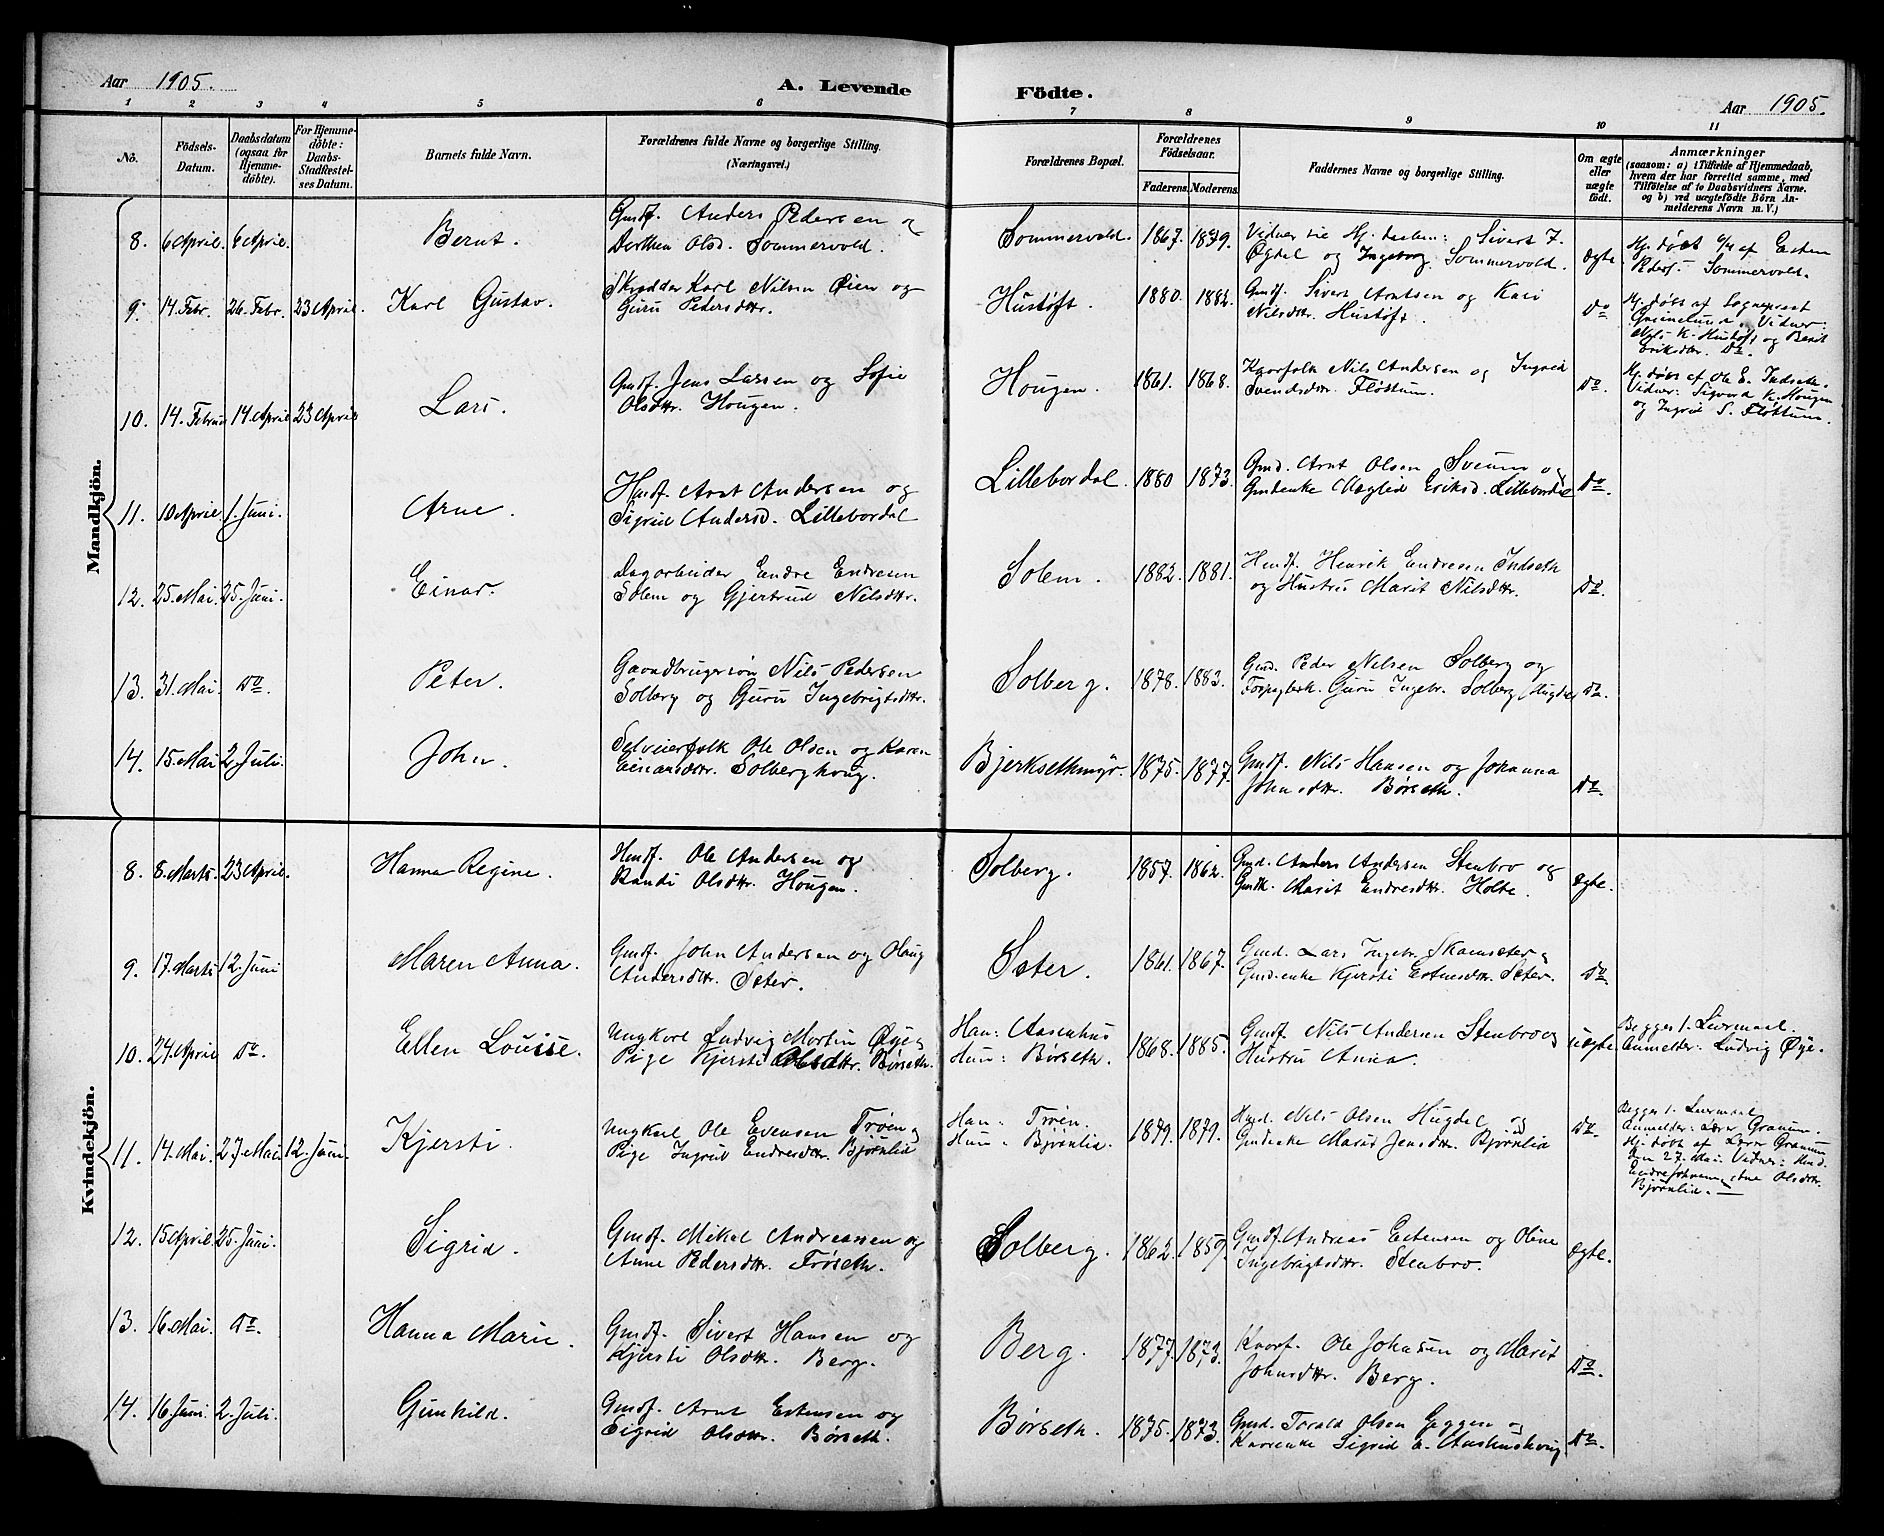 Aar 1905. A. Levende Födte. Aar 1905.
1 2 3 4 5 6 7 8 9 10 11
No. Födsels-Datum. Daabsdatum (ogsaa for Hjemme-döbte). For Hjemme-döbte: Daabs-Stadfæstel-ses Datum. Barnets fulde Navn. Forældrenes fulde Navne og borgerlige Stilling. (Næringsvei.) Forældrenes Bopæl. Forældrenes Födselsaar. Faderens. Moderens. Faddernes Navne og borgerlige Stilling. Om ægte eller uægte födt. Anmærkninger (saasom: a) i Tilfælde af Hjemmedaab, hvem der har forrettet samme, med Tilföielse af to Daabsvidners Navne. og b) ved uægtefödte Börn An-melderens Navn m. V.)
Mandkjön.
8. 6 April. 6 April. Bernt. Gmdf. Anders Pedersen og
Dorthea Olsd. Sommervold. Sommervold. 1867. 1879. Vidner til Hj. daaben: Sivert J.
Øgdal og Ingeborg Sommervold. ægte Hj. døbt 6/4 af Esten
Peders. Sommervold.
9. 14. Febr. 26. Febr. 23 April. Karl Gustav. Skrædder Karl Nilsen Øien og
Guru Pedersdtr. Hustøft. 1880. 1882. Gmdf. Sivert Arntsen og Kari
Nilsdtr. Hustøft. Do Hj. døbt af Sogneprest
Vidner:
Nils K. Hustøft og Berit
Eriksdtr. Do.
10. 14. Februar 14 April 23 April Lars. Gmdf. Jens Larsen og Sofie
Olsdtr. Hougen. Hougen. 1861. 1868. Kaarfolk Nils Andersen og Ingrid
Svendsdtr. Fløttum. Do. Hj. døbt af Ole E. Indset.
Vidner: Sigvard K. Hougen
og Ingrid S. Fløttum.
11. 10 April. 1. Juni. Arne. Husf. Arnt Andersen og
Sigrid Andersd. Lillebordal Lillebordal. 1880 1873. Gmd. Arnt Olsen Sveum og
Gmdenke Maglid Eriksd. Lillebordal Do.
12. 25. Mai. 25. Juni. Einar. Dagarbeider Endre Endresen
Solem og Gjertrud Nilsdtr. Solem. 1882. 1881. Husf. Henrik Endresen Indseth
og Hustru Marit Nilsdtr. Do.
13. 31. Mai. Do. Peter. Gaardbrugersøn Nils Pedersen
Solberg og Guru Ingebrigtsdtr. Solberg. 1878. 1883. Gmd. Peder Nilsen Solberg og
Guru Ingebr. Solberg Do.
14. 15. Mai 2. Juli. John. Selveierfolk Ole Olsen og Karen
Einarsdtr. Solberghoug. Bjerksethmyr. 1875. 1877. Gmdf. Nils Hansen og Johanna
Johnsdtr. Børseth. Do.
Kvindekjön.
8. 8. Marts. 23 April. Hanna Regine. Husf. Ole Andersen og
Randi Olsdtr. Hougen. Solberg. 1857. 1862. Gmd. Anders Andersen Stenbro og
Gmdk. Marit Endresdtr. Holte. ægte.
9. 17. Marts 12. Juni Maren Anna. Gmdf. John Andersen og Olaug
Andersdtr. Sæter. Sæter. 1861. 1867. Gmd. Lars Ingebr. Skamsæter og
Gmdenke Kjersti Estensdtr. Sæter. Do
10. 24. April Do. Ellen Louise. Ungkarl Ludvig Martin Øye og
Pige Kjersti Olsdtr. Børseth. Han: Aasenhus
Hun: Børseth. 1868. 1885. Gmdf. Nils Andersen Stenbro og
Hustru Anna. uægte. Begges 1. Leiermaal.
Anmelder: Ludvig Øye.
11. 14. Mai. 27. Mai. 12. Juni. Kjersti Ungkarl Ole Evensen Trøen og
Pige Ingrid Endresdtr. Bjørnlid Han: Trøen.
Hun: Bjørnlid. 1879. 1879. Husmd. Nils Olsen Hugdal og
Gmdenke Marit Jensdtr. Bjørnlid Do. Begges 1. Leiermaal
Anmelder: Lærer Granum.
Hj. døbt af Lærer Granum
den 27. Mai. Vidner: Husmd.
Endre Johnsen, Ane Olsdtr.
Bjørnlid.
12. 15 April. 25. Juni. Sigrid. Gmdf. Mikal Andreassen og
Anne Pedersdtr. Frøseth. Solberg. 1862. 1859. Gmdf. Andreas Estensen og Oline
Ingebrigtsdtr. Stenbro. ægte.
13. 16. Mai. Do. Hanna Marie. Gmdf. Sivert Hansen og
Kjersti Olsdtr. Berg. Berg. 1877. 1873. Kaarf. Ole Johnsen og Marit
Johnsdtr. Berg. Do.
14. 16. Juni. 2. Juli. Gunhild. Gmdf. Arnt Estensen og
Sigrid Olsdtr. Børseth. Børseth. 1875. 1873. Gmd. Torald Olsen Eggen og
Kaarenke Sigrid Do.